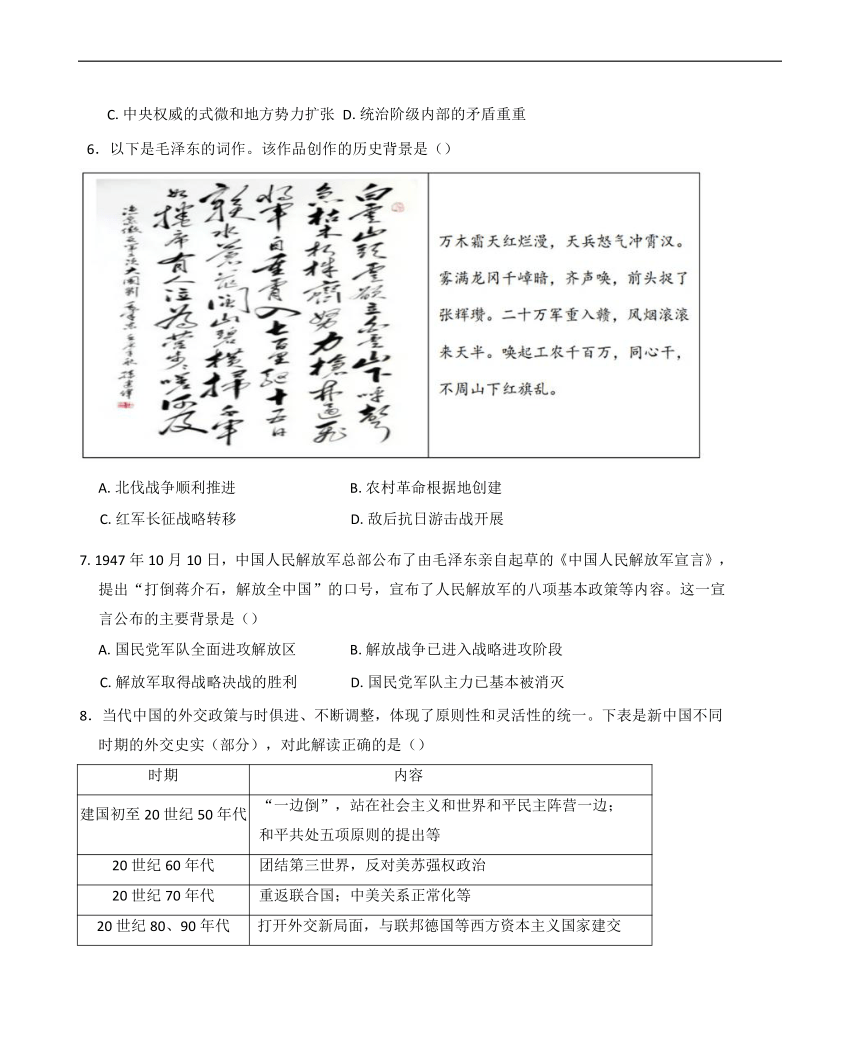 C. 中央权威的式微和地方势力扩张 D. 统治阶级内部的矛盾重重
6．以下是毛泽东的词作。该作品创作的历史背景是()
白雲山頭雲欲立白雲山下呼聲
急枯木朽株齊努力槍林逼飛
將軍自重霄入七百里驅十五日
贛水蒼茫閩山碧橫掃千軍
如捲席有人泣為營步步嗟何及
万木霜天红烂漫，天兵怒气冲霄汉。
雾满龙冈千嶂暗，齐声唤，前头捉了
张辉瓒。二十万军重入赣，风烟滚滚
来天半。唤起工农千百万，同心干，
不周山下红旗乱。
A. 北伐战争顺利推进 B. 农村革命根据地创建
C. 红军长征战略转移 D. 敌后抗日游击战开展
7. 1947 年 10 月 10 日，中国人民解放军总部公布了由毛泽东亲自起草的《中国人民解放军宣言》，
提出“打倒蒋介石，解放全中国”的口号，宣布了人民解放军的八项基本政策等内容。这一宣
言公布的主要背景是()
A. 国民党军队全面进攻解放区 B. 解放战争已进入战略进攻阶段
C. 解放军取得战略决战的胜利 D. 国民党军队主力已基本被消灭
8．当代中国的外交政策与时俱进、不断调整，体现了原则性和灵活性的统一。下表是新中国不同
时期的外交史实（部分），对此解读正确的是()
时期 内容
建国初至 20 世纪 50 年代 “一边倒”，站在社会主义和世界和平民主阵营一边；
和平共处五项原则的提出等
20 世纪 60 年代 团结第三世界，反对美苏强权政治
20 世纪 70 年代 重返联合国；中美关系正常化等
20 世纪 80、90 年代 打开外交新局面，与联邦德国等西方资本主义国家建交